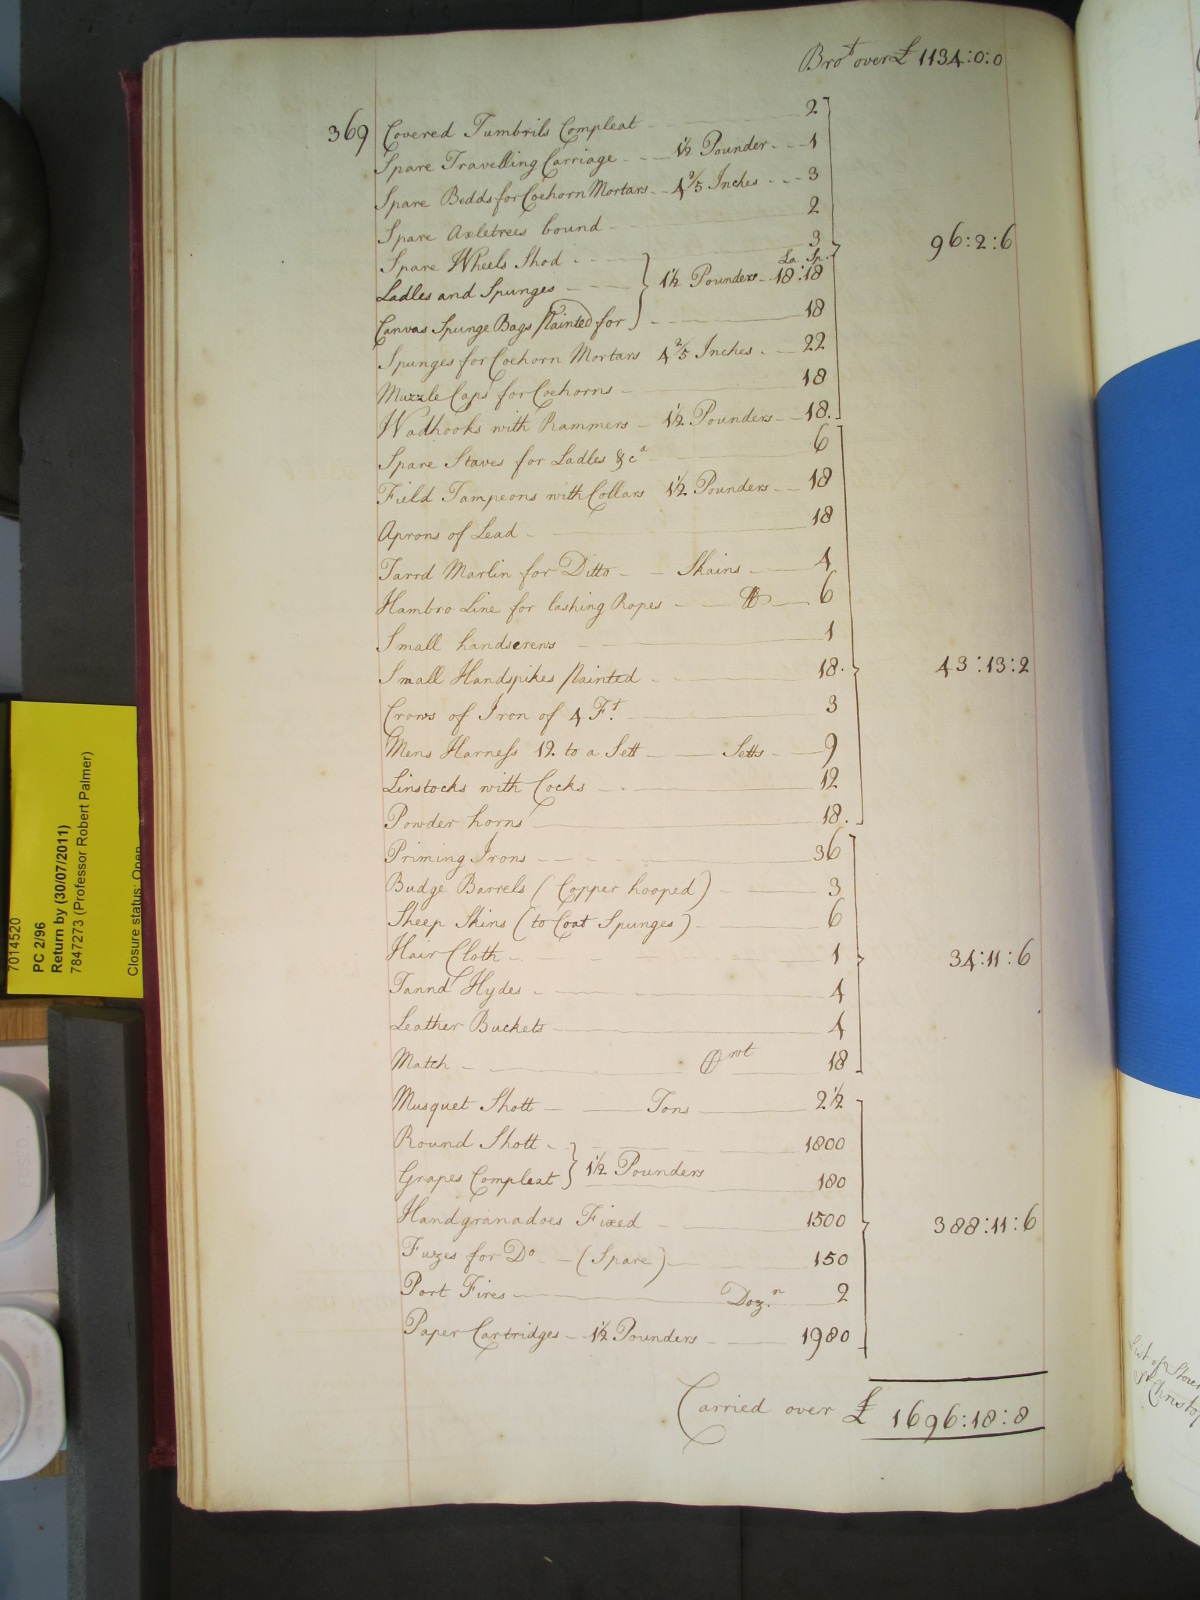 Bro.t over £ 1134:0:0
369 Covered Tumbrils Compleat 2
Spare Travelling Carriage 1½ Pounder 1
Spare Bedds for Coehorn Mortars 4⅖ Inches 3
Spare Axletrees bound 2
Spare Wheels Shod 3 96:2:6
La. Sp.
Ladles and Spunges 1½ Pounders 18:18
Canvas Spunge Bags Painted for 18
Spunges for Coehorn Mortars 4⅖ Inches 22
Muzzle Caps for Coehorns 18
Wadhooks with Rammers 1½ Pounders 18
Spare Staves for Ladles &c.a 6
Field Tampeons with Collars 1½ Pounders 18
Aprons of Lead 18
Tarrd Marlin for Ditto Skains 4
Hambro Line for lashing Ropes lb 6
Small handscrews 1
Small Handspikes Painted 18 43:13:2
Crows of Iron of 4 F.t 3
Mens Harness 12. to a Sett Setts 9
Linstocks with Cocks 12
Powder horns 18
Priming Irons 36
Budge Barrels (Copper hooped) 3
Sheep Skins (to Coat Spunges) 6
Hair Cloth 1 34:11:6
Tannd Hydes 4
Leather Buckets 4
Match Cwt 18
Musquet Shott Tons 2½
Round Shott 1800
1½ Pounders
Grapes Compleat 180
Handgranadoes Fixed 1500 388:11:6
Fuzes for Do (Spare) 150
Port Fires Doz.n 2
Paper Cartridges 1½ Pounders 1980
Carried over £ 1696:18:8
7014520
PC 2/96
Return by (30/07/2011)
7847273 (Professor Robert Palmer)
Closure status: Open
List of Stores
St Christop